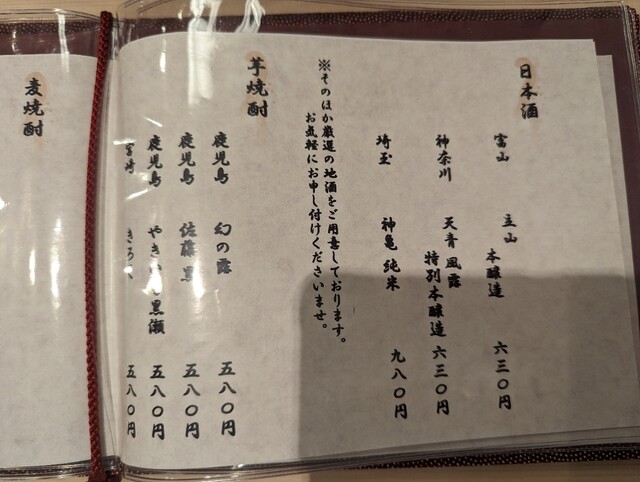 日本酒
富山 立山 本醸造 六三〇円
神奈川 天青 風露 特別本醸造 六三〇円
埼玉 神亀 純米 九八〇円
※そのほか厳選の地酒をご用意しております。
お気軽にお申し付けくださいませ。
芋焼酎
鹿児島 幻の露 五八〇円
鹿児島 佐藤 黒 五八〇円
鹿児島 やきいも 黒瀬 五八〇円
宮崎 五八〇円
麦焼酎